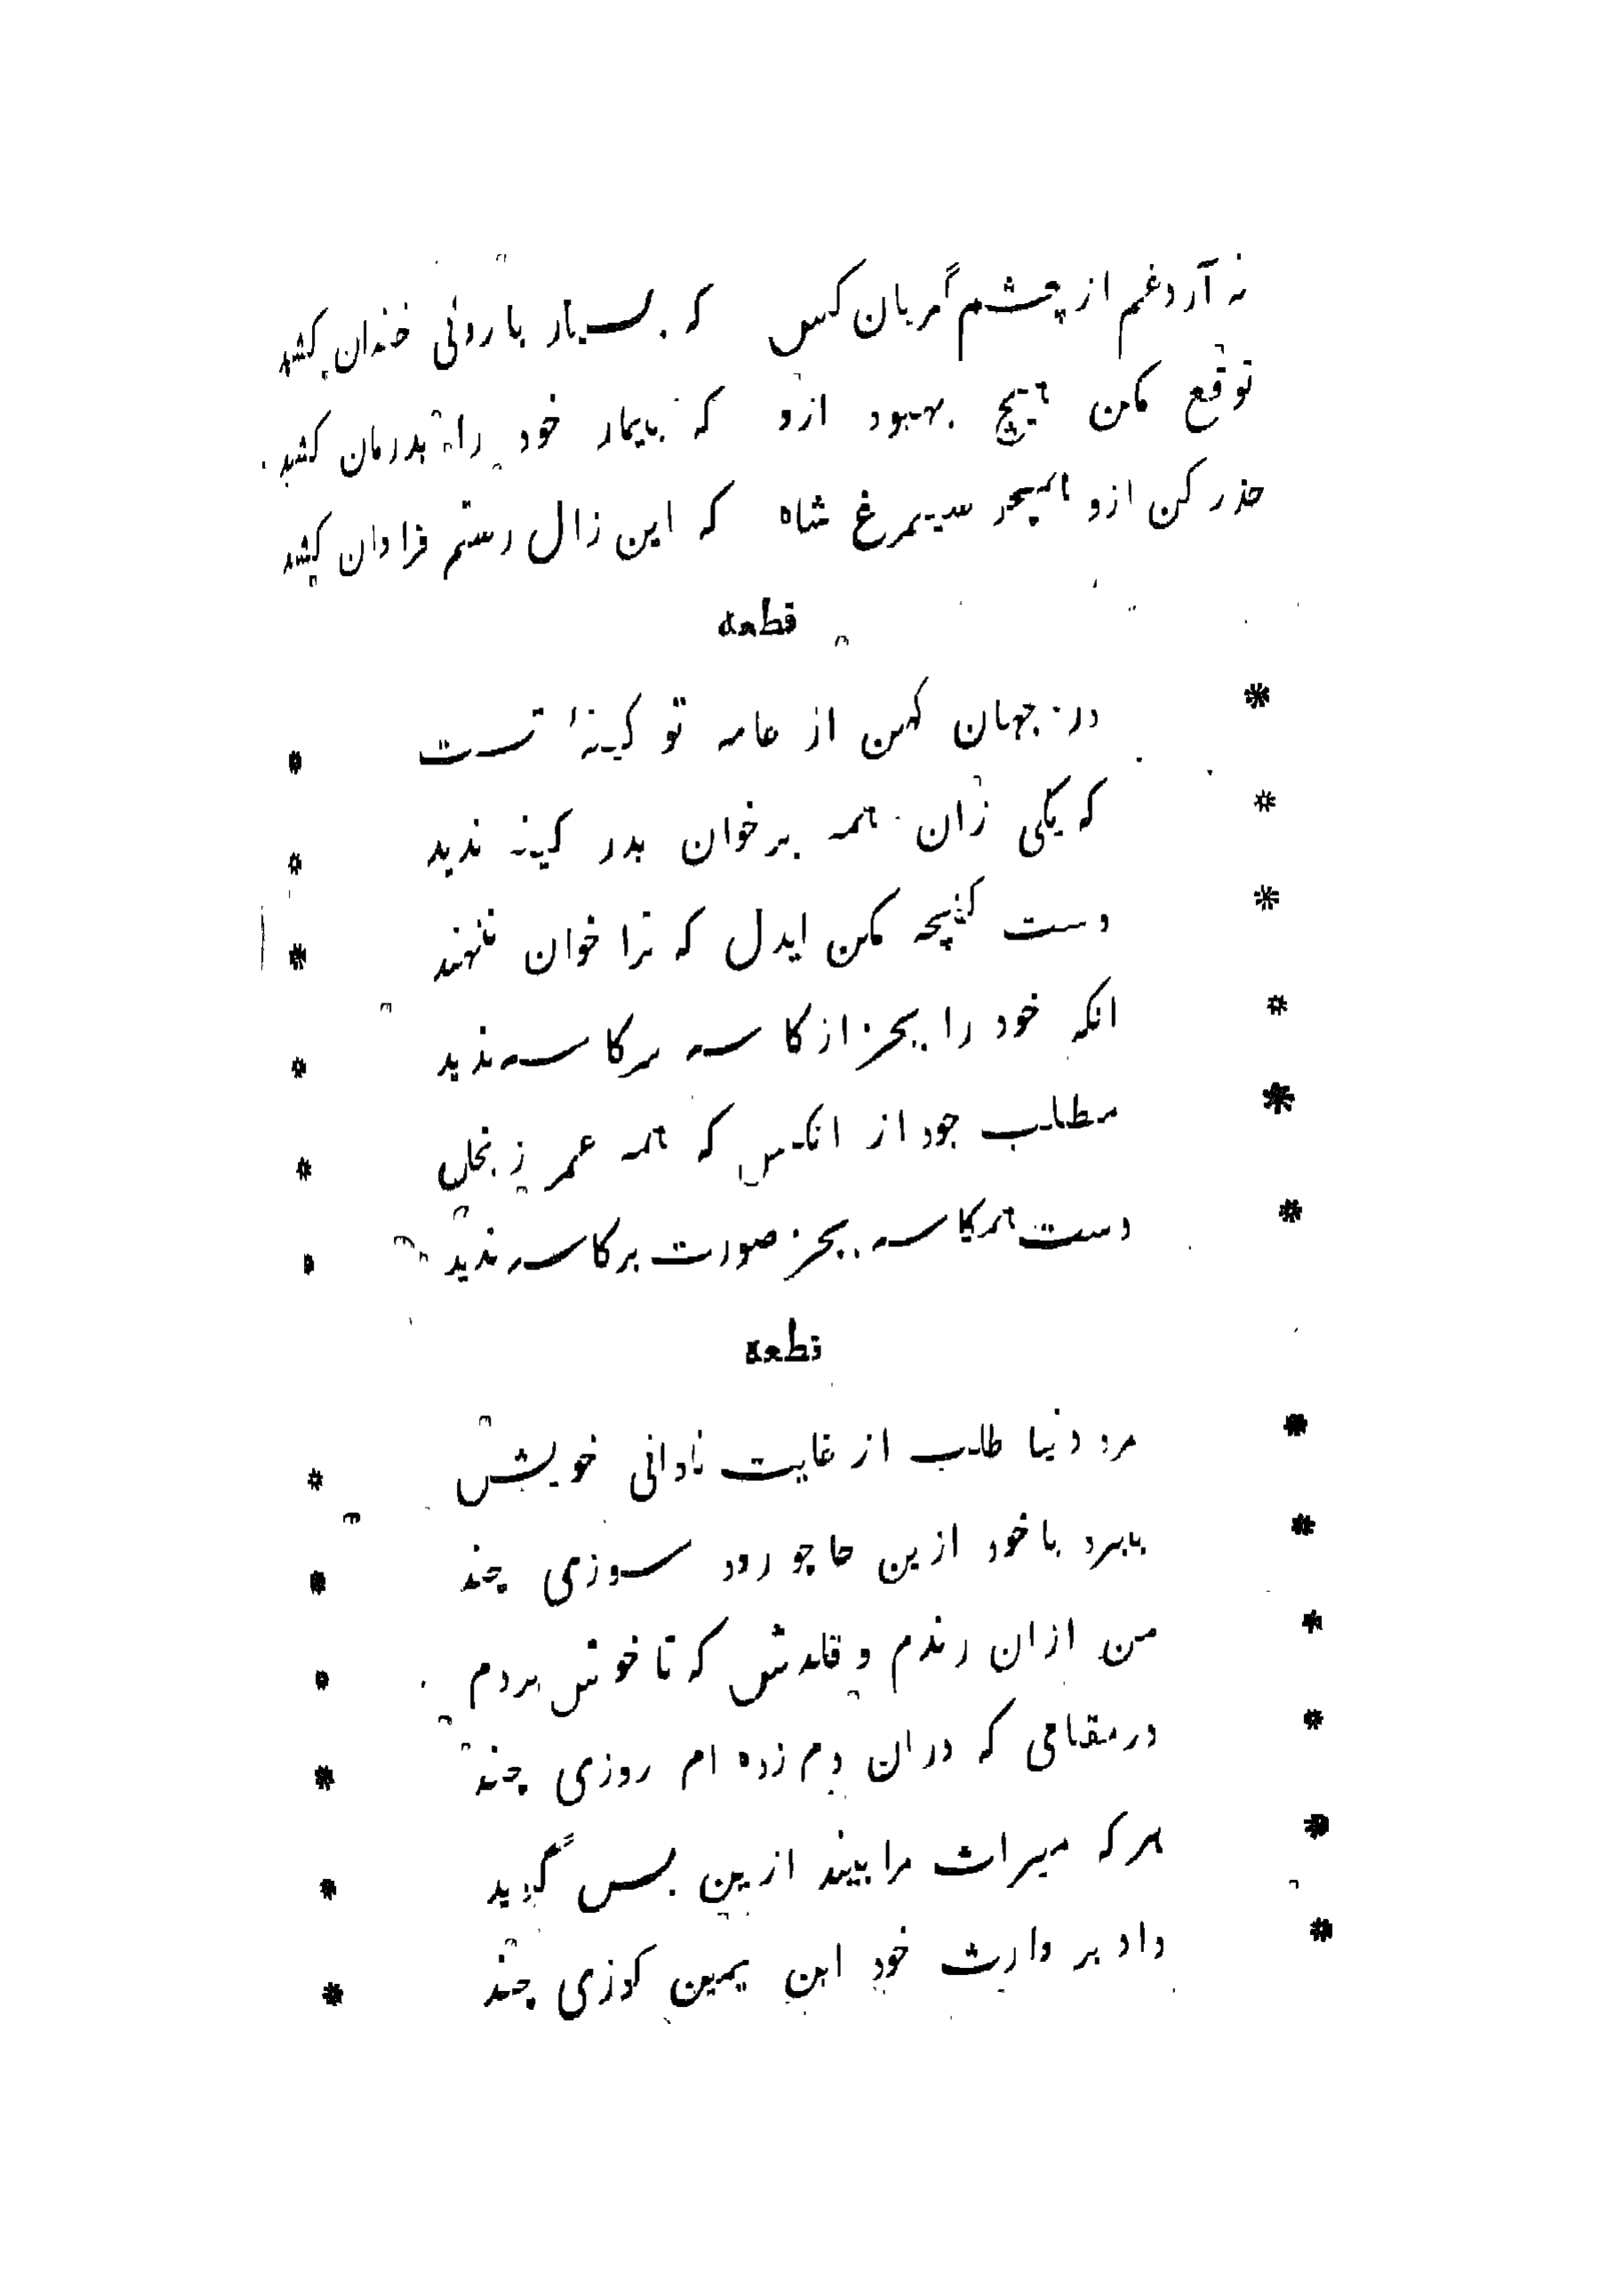 نه آرد غم از چشم گریان کس که بسیار با روئی خندان کشد
توقع مکن هیچ بهبود ازو که بیمار خود را بدرمان کشد
حذر کن ازو همچو سیمرغ شاه که این زال رستم فراوان کشد
قطعه
* در جهان کهن از عامه تو کینهٔ تست *
* که یکی زان همه برخوان بدر کینه ندید *
* دست کفچه مکن ایدل که ترا خوان ننهند *
* انکه خود را بجز از کاسه سر کاسه ندید *
* مطلب جود از انکس که همه عمر ز بخل *
* دست همکاسه بجز صورت بر کاسه ندید *
قطعه
* مرد دنیا طلب از غایت نادانی خویش *
* ببرد با خود ازین جا چو رود سوزی چند *
* من ازان رندم و قلاش که تا خوش بردم *
* در مقامی که دران دم زده ام روزی چند *
* هر که میراث مرا بیند ازین بس گوید *
* داد بر وارث خود ابن یمین کوزی چند *